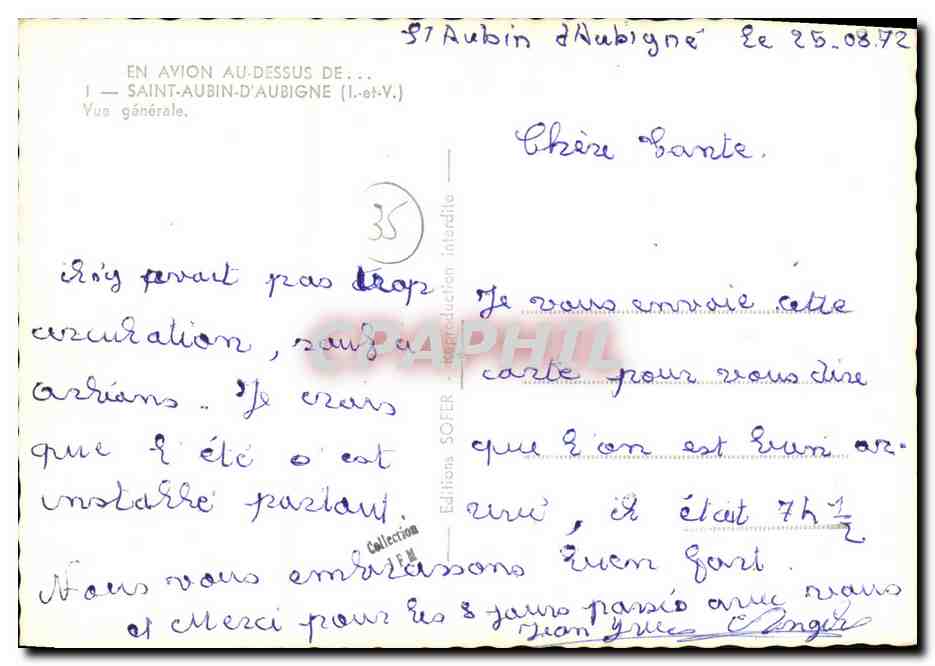 St Aubin d'Aubigné le 25-08.72
EN AVION AU-DESSUS DE...
1 — SAINT-AUBIN-D'AUBIGNE (I.-et-V.)
Vue générale.
Chère Tante.
35
Je vous envoie cette
carte pour vous dire
que l'on est bien ar-
rivé, il était 7h 1/2
il n'y avait pas trop
circulation, sauf a
orléans.. Je crois
que l'été s'est
installé partout.
Nous vous embrassons bien fort.
et Merci pour les 8 jours passés avec vous
Jean Yves
Editions SOFER - Reproduction interdite
Collection
CPAPHIL